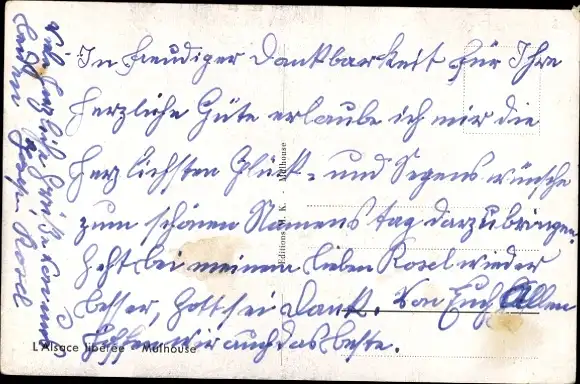 In freudiger Dankbarkeit für Ihre
herzliche Güte erlaube ich mir die
herzlichsten Glück- und Segenswünsche
zum schönen Namenstag darzubringen.
Geht bei meinem lieben Rosel wieder
besser, Gott sei Dank. Von Euch Allen
hoffen wir auch das beste.
Viele herzliche Grüße von uns
beiden Rosel
Editions M. K. - Mulhouse
L'Alsace libérée - Mulhouse